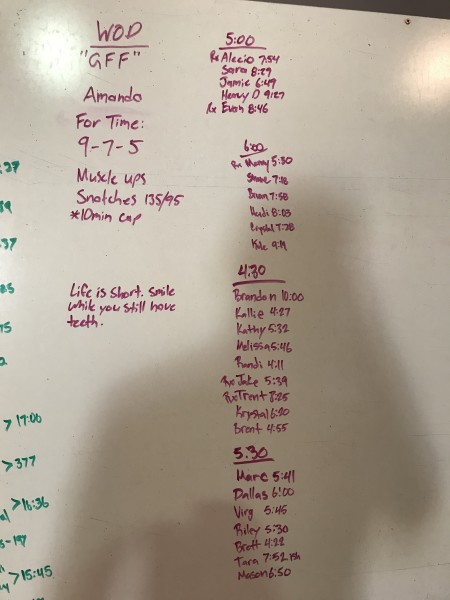 WOD
"GFF"
Amanda
For Time:
9-7-5
Muscle ups
Snatches 135/95
*10min cap
Life is short. Smile
while you still have
teeth.
5:00
Rx Alecio 7:54
Sara 8:29
Jamie 6:49
Henry O 9:27
Rx Evan 8:46
6:00
Rx Manny 5:30
7:18
Brian 7:58
Heidi 8:03
Crystal 7:28
Kyle 9:19
4:30
Brandon 10:00
Kallie 4:27
Kathy 5:32
Melissa 5:46
Randi 4:11
Rx Jake 5:39
Rx Trent 8:25
Krystal 6:20
Brent 4:55
5:30
Marc 5:41
Dallas 6:00
Virg 5:45
Riley 5:30
Brett 4:22
Tara 7:52
Mason 6:50
:27
39
37
85
75
2
>17:00
>377
>16:36
al
5-197
>15:45